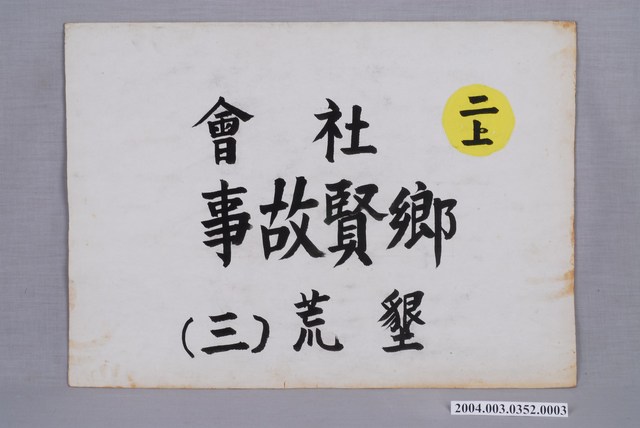 二上
社會
鄉賢故事
墾荒(三)
2004.003.0352.0003